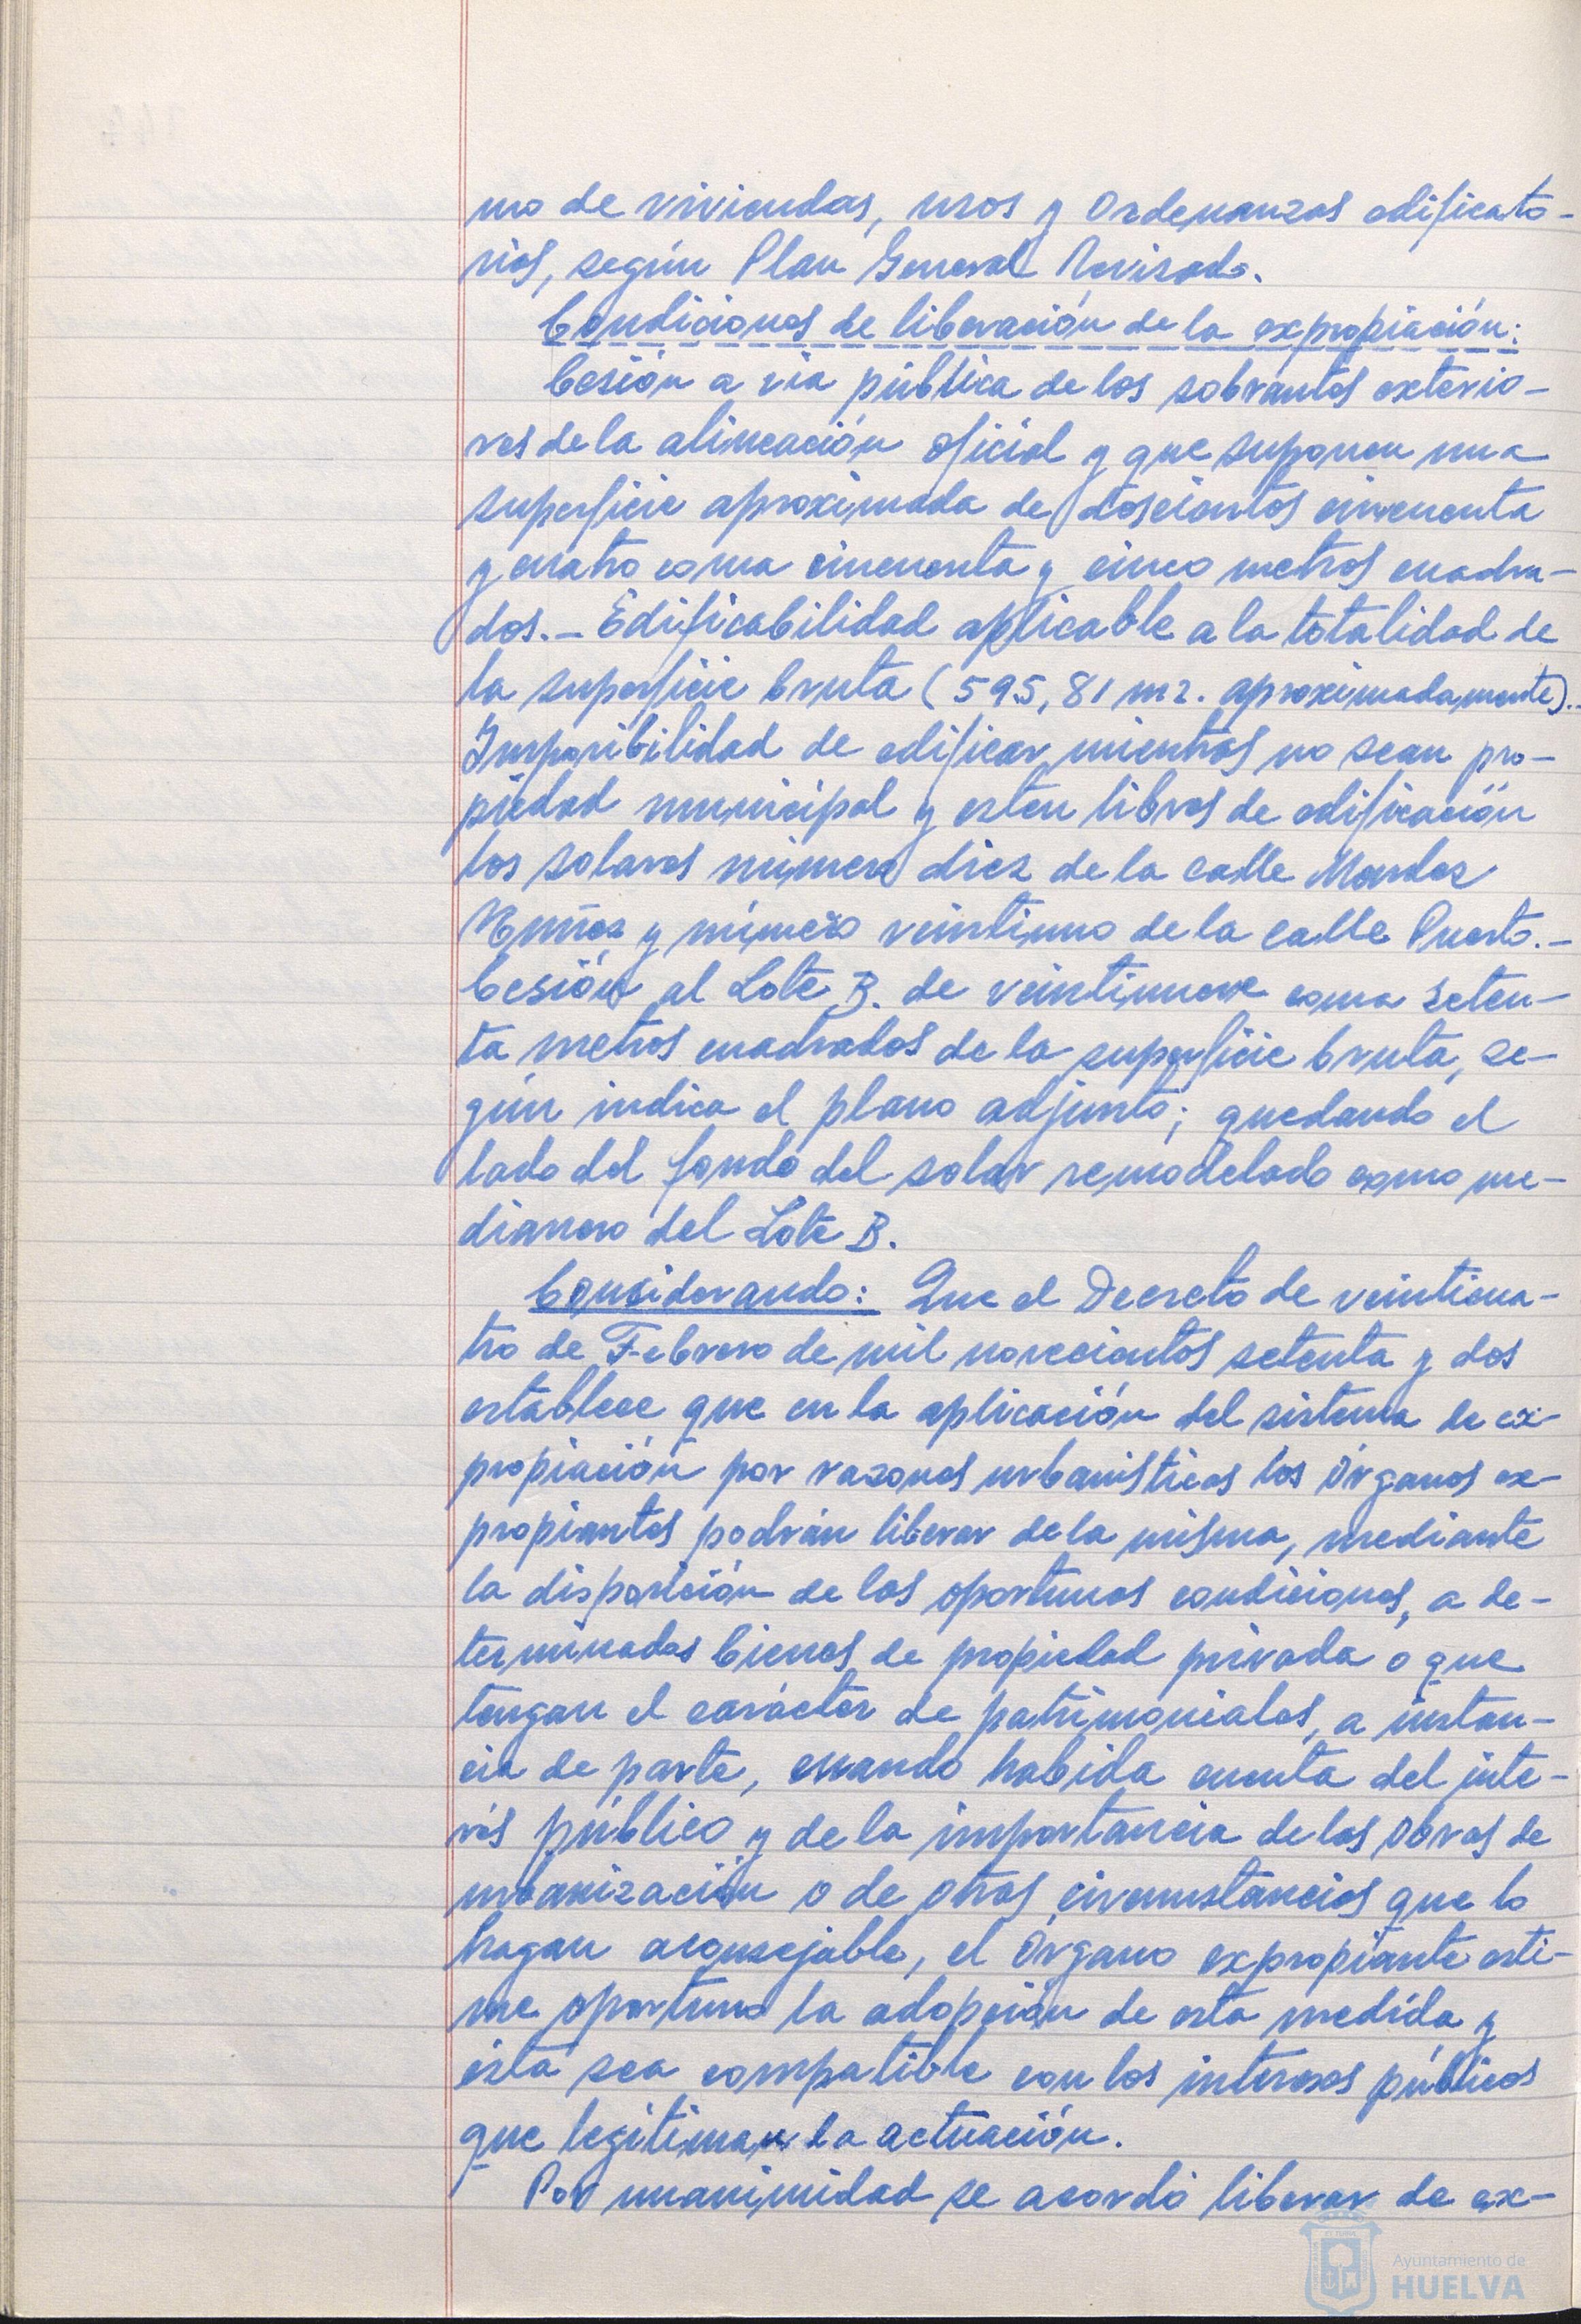 mo de viviendas, usos y Ordenanzas edificato-
rias, según Plan General Revisado.
Condiciones de liberación de la expropiación:
Cesión a via pública de los sobrantes exterio-
res de la alineación oficial y que suponen una
superficie aproximada de doscientos cincuenta
y cuatro coma cincuenta y cinco metros cuadra-
dos.- Edificabilidad aplicable a la totalidad de
la superficie bruta (595,81 m2. aproximadamente).-
Imposibilidad de edificar mientras no sean pro-
piedad municipal y esten libres de edificación
los solares número diez de la calle Mendez
Nuñez y número veintiuno de la calle Puerto.-
Cesión al Lote B. de veintinueve coma seten-
ta metros cuadrados de la superficie bruta, se-
gún indica el plano adjunto; quedando el
lado del fondo del solar remodelado como me-
dianero del Lote B.
Considerando: Que el Decreto de veinticua-
tro de Febrero de mil novecientos setenta y dos
establece que en la aplicación del sistema de ex-
propiación por razones urbanisticas los Órganos ex-
propiantes podrán liberar de la misma, mediante
la disposición de las oportunas condiciones, a de-
terminados bienes de propiedad privada o que
tengan el carácter de patrimoniales, a instan-
cia de parte, cuando habida cuenta del inte-
rés público y de la importancia de las obras de
urbanización o de otras circunstancias que lo
hagan aconsejable, el Órgano expropiante esti-
me oportuno la adopción de esta medida y
ésta sea compatible con los intereses públicos
que legitiman la actuación.
Por unanimidad se acordó liberar de ex-
Ayuntamiento de
HUELVA